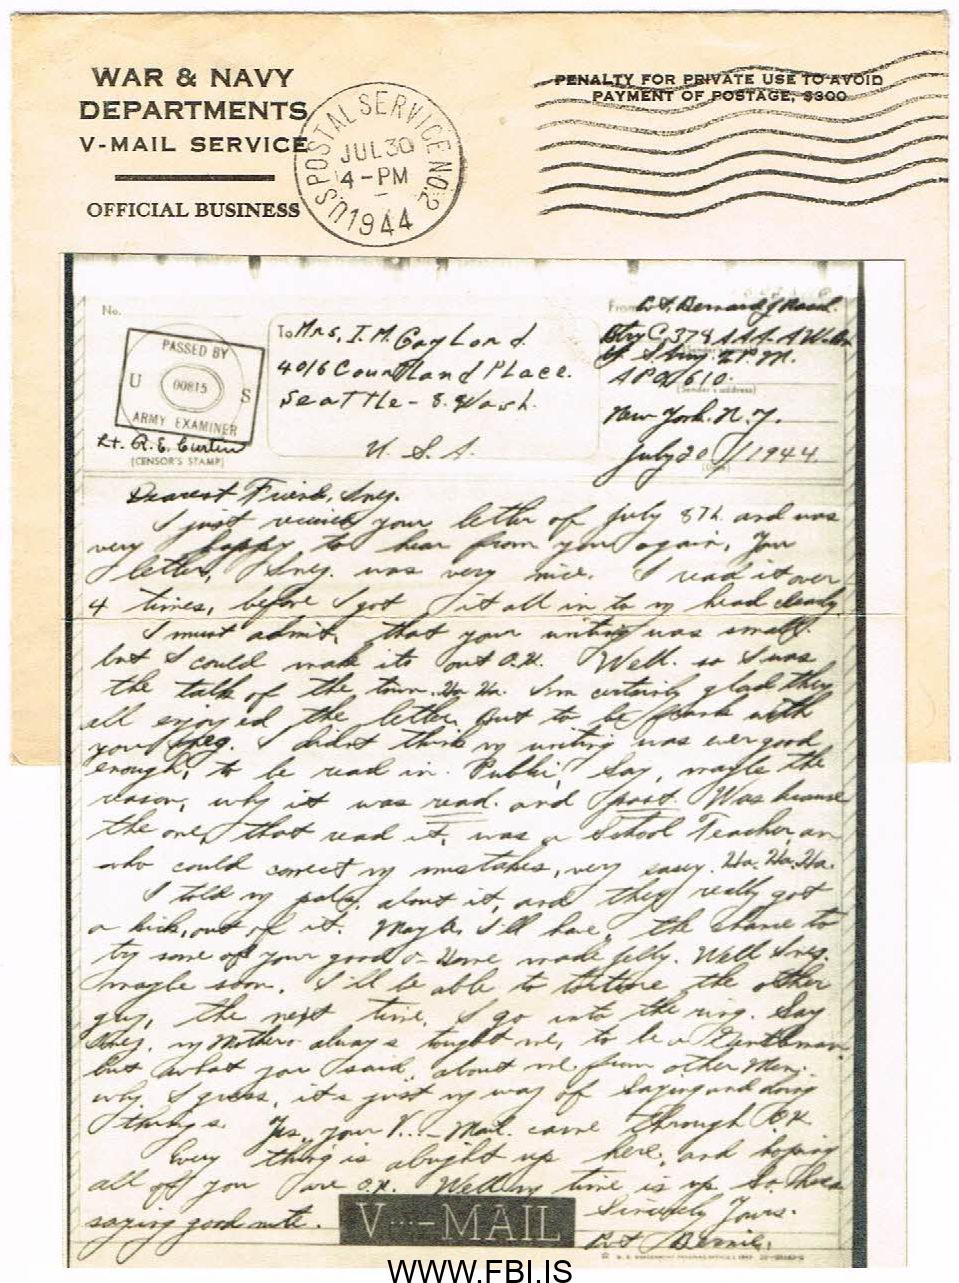 WAR & NAVY
DEPARTMENTS
V-MAIL SERVICE
OFFICIAL BUSINESS
U.S. POSTAL SERVICE NO. 2
JUL 30
4-PM
1944
PENALTY FOR PRIVATE USE TO AVOID
PAYMENT OF POSTAGE, $300
No.
PASSED BY
U 00815 S
ARMY EXAMINER
Lt. R.E. Curtin
(CENSOR'S STAMP)
To Mrs, I.M. Gaylord.
4016 Courtland Place.
Seattle - 8. Wash.
U. S. A.
From
Btry C, 378 A.A.A. A.W. Bn
APO 610.
(Sender's address)
New York. N.Y.
July 20 / 1944.
(Date)
Dearest Friend, Ineg.
I just received your letter of July 8th. and was
very happy to hear from you again. Your
letter, Ineg. was very nice. I read it over
4 times, before I got it all in to my head clearly
I must admit, that your writing was small.
but I could make it out O.K. Well. so I was
the talk of the town. Ha Ha. I'm certainly glad they
all enjoyed the letter. But to be frank with
you Ineg. I didn't think my writing was ever good
enough, to be read in Public, Say, maybe the
reason, why it was read. and past. Was because
the one, that read it, was a School Teacher, an
who could correct my mistakes, very easey. Ha. Ha. Ha.
I told my pals, about it, and they really got
a kick, out of it. Maybe I'll have, the chance to
try some of your good o- Home made jelly. Well Ineg.
maybe soon. I'll be able to torture the other
guy, the next time, I go into the ring. Say
Ineg. my Mother always tought me, to be a Gentleman
but what you said, about me, from other Men.
why, I guess, it's just my way of saying and doing
things. Yes, your V...-Mail. came through O.K
Every thing is alright up here, and hoping
all of you are O.K. Well my time is up. So heres
saying good nite.
Sincerely Yours.
Bernie.
V···-MAIL
WWW.FBI.IS